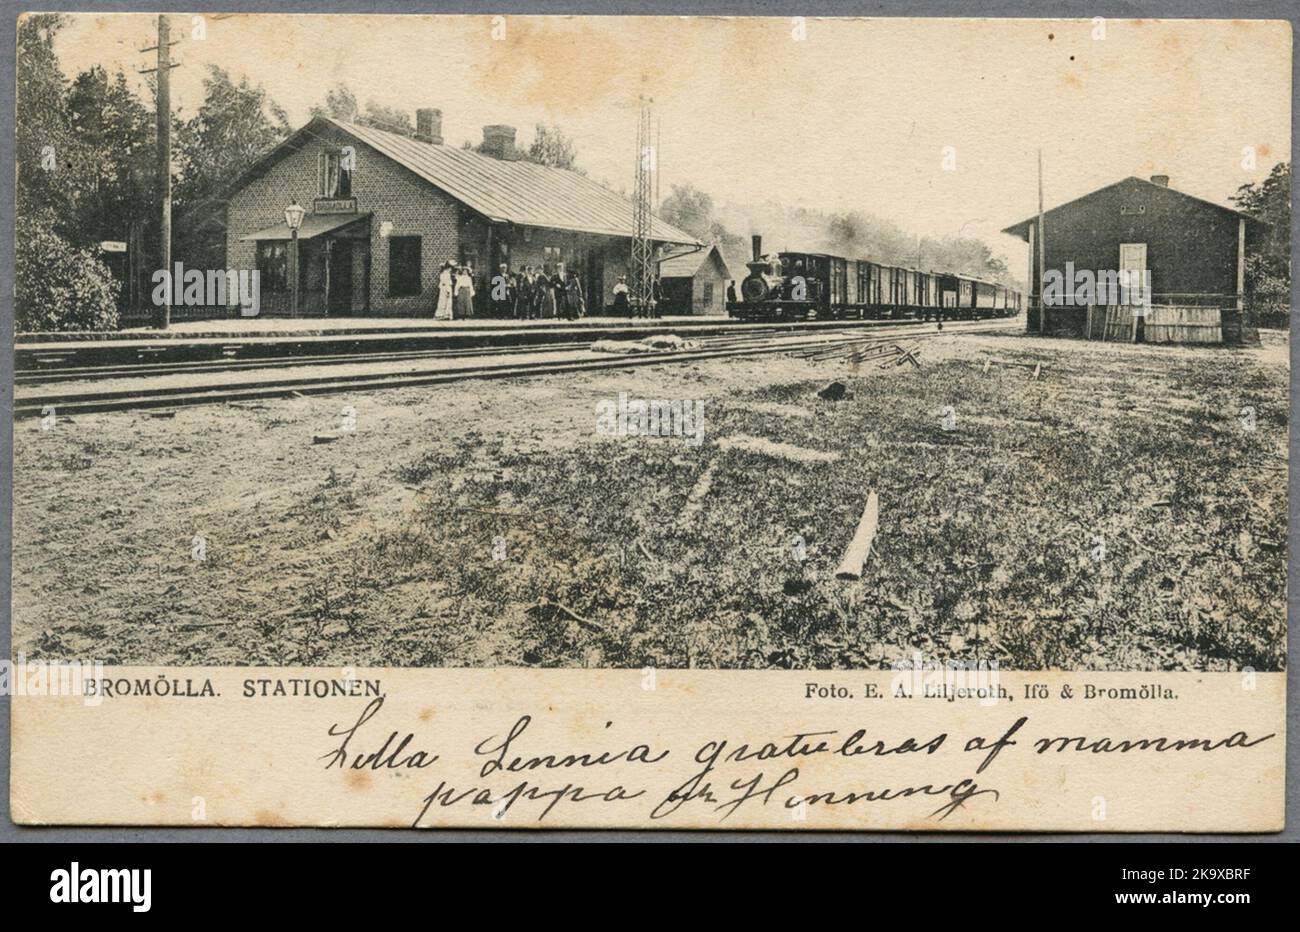 BROMÖLLA
BROMÖLLA. STATIONEN.
Foto. E. A. Liljeroth, Ifö & Bromölla.
Lilla Lennia gratuleras af mamma
pappa och Honneng
alamy
Image ID: 2K9XBRF
www.alamy.com